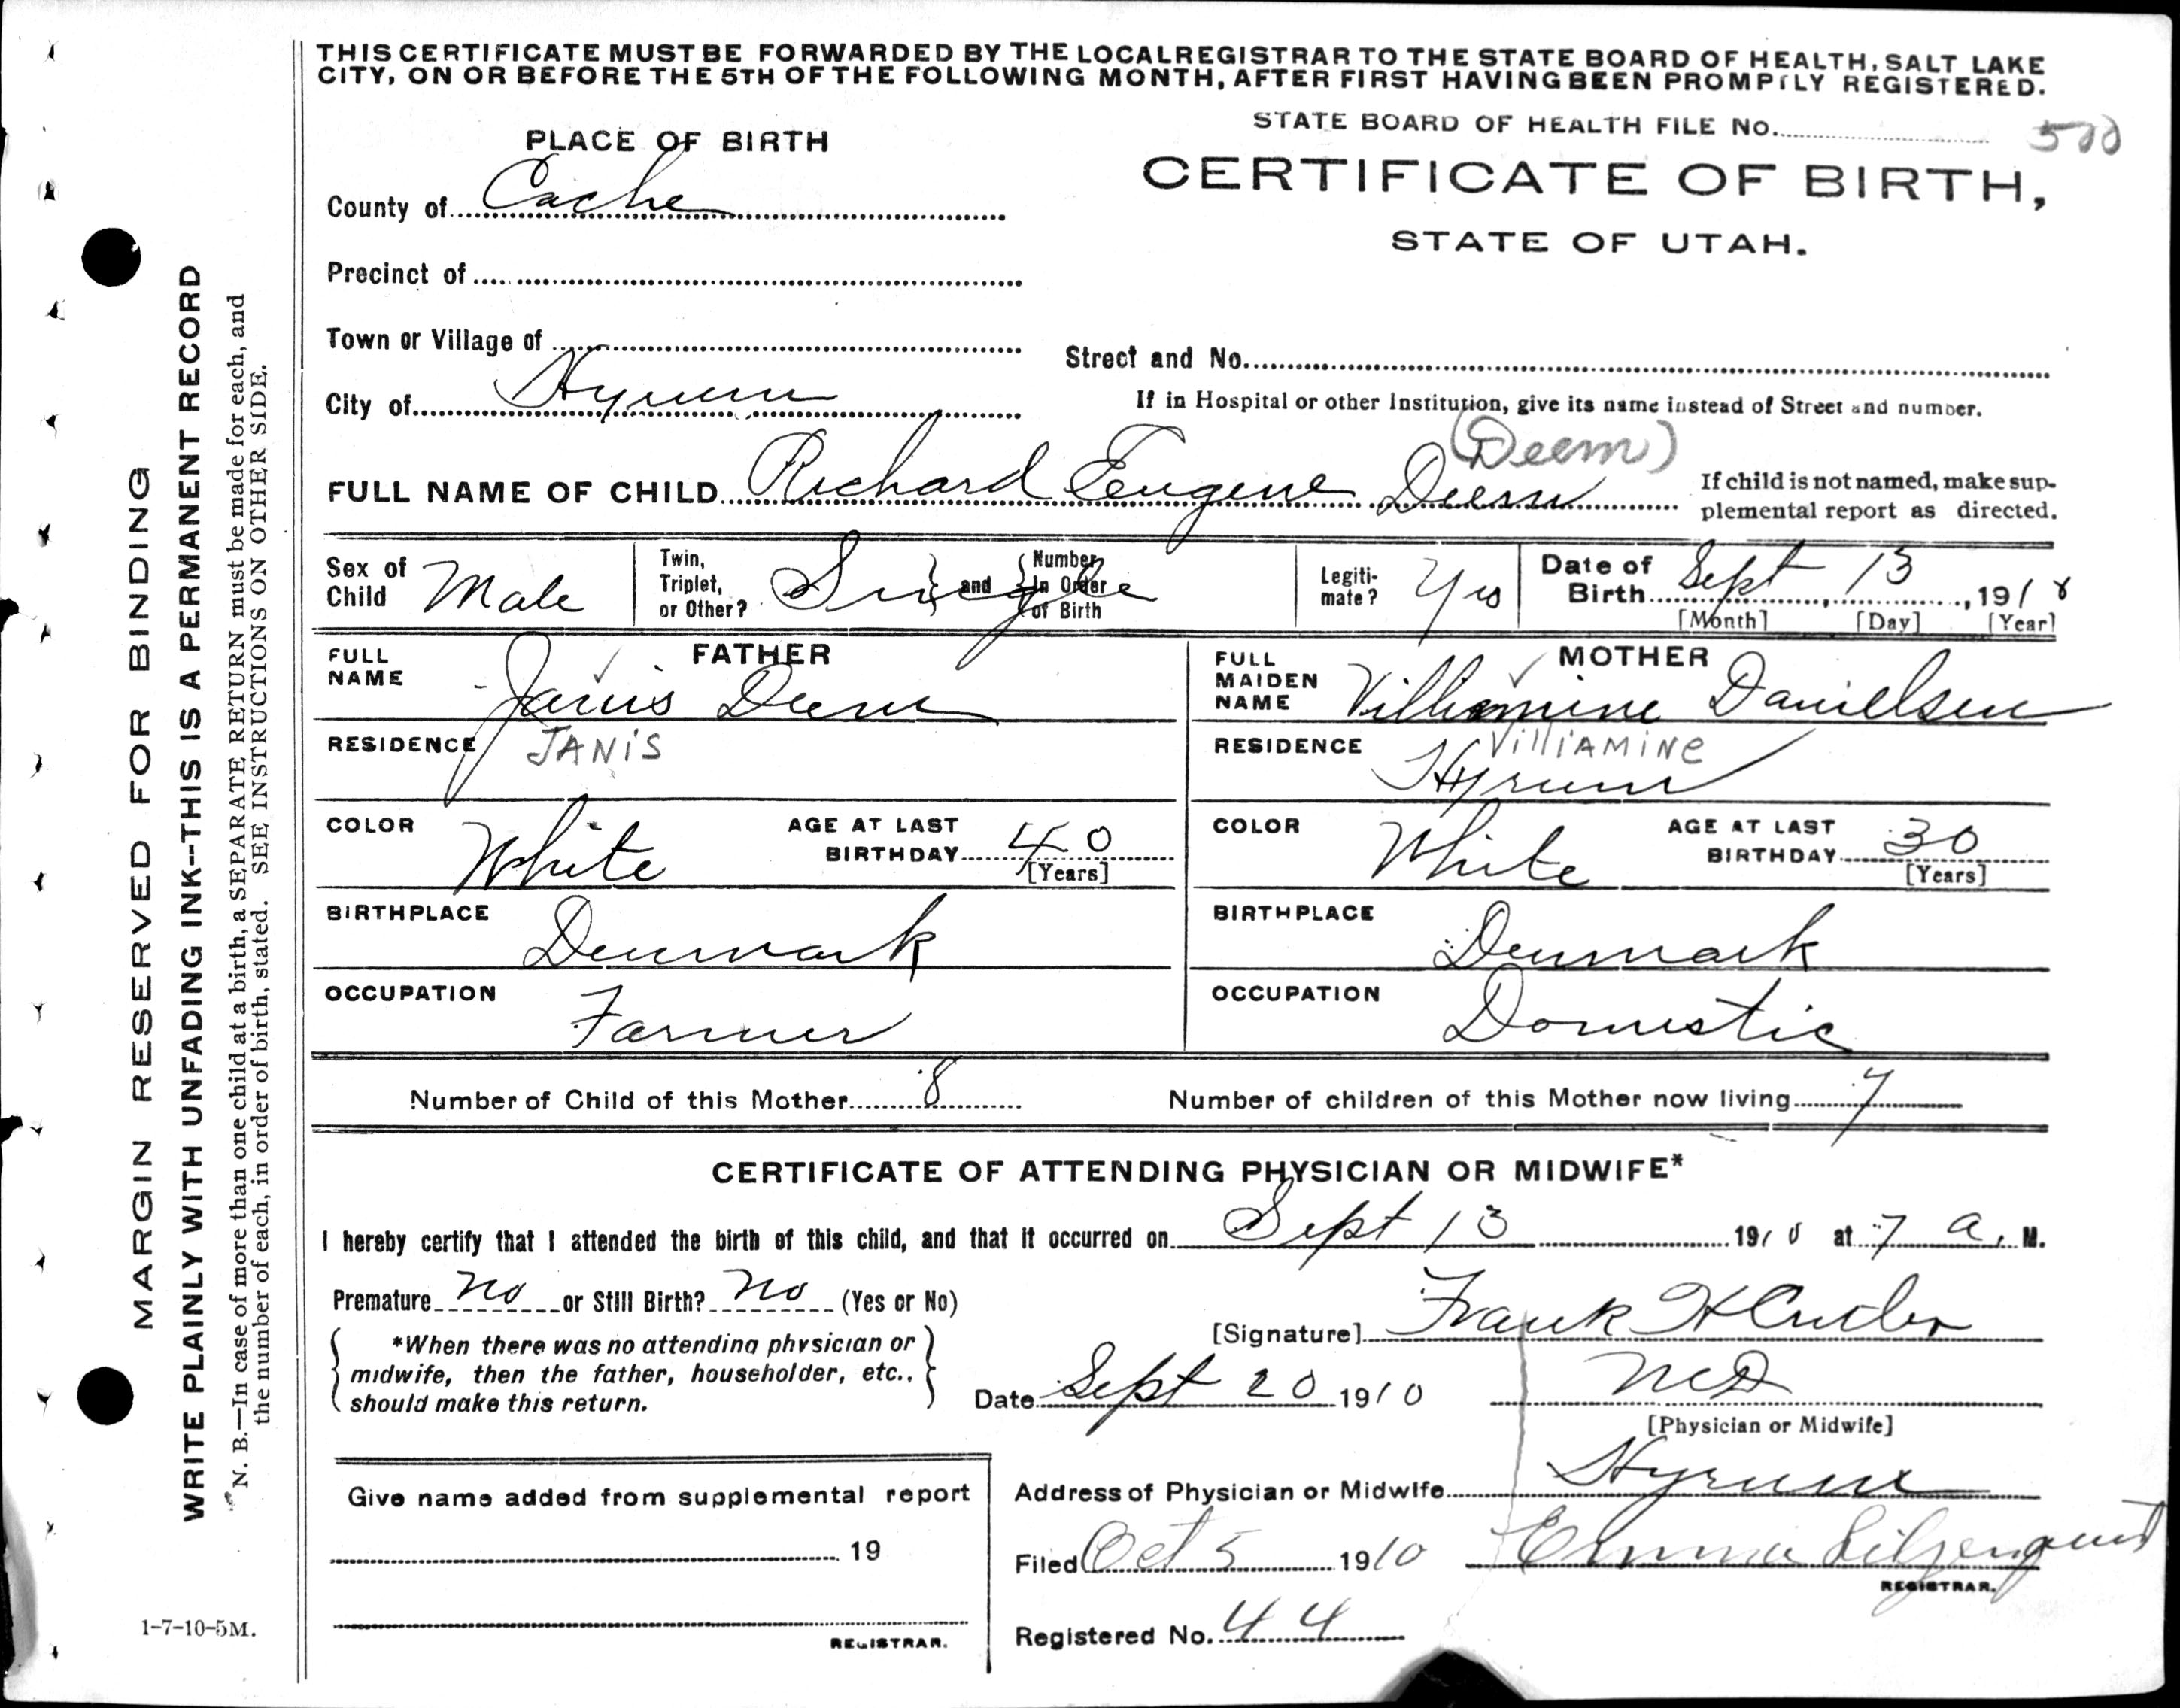 THIS CERTIFICATE MUST BE FORWARDED BY THE LOCAL REGISTRAR TO THE STATE BOARD OF HEALTH, SALT LAKE
CITY, ON OR BEFORE THE 5TH OF THE FOLLOWING MONTH, AFTER FIRST HAVING BEEN PROMPTLY REGISTERED.
STATE BOARD OF HEALTH FILE No.
PLACE OF BIRTH
CERTIFICATE OF BIRTH,
STATE OF UTAH.
County of Cache
Precinct of
Town or Village of
Street and No.
City of Hyrum
If in Hospital or other Institution, give its name instead of Street and number.
(Deem)
FULL NAME OF CHILD Richard Eugene Deem
If child is not named, make sup-
plemental report as directed.
Sex of Child Male
Twin, Triplet, or Other? Single and Number in Order of Birth
Legiti-mate? Yes
Date of Birth Sept, 13, 191
[Month] [Day] [Year]
FATHER
MOTHER
FULL NAME Janis Deem
FULL MAIDEN NAME Villiamine Danielsen
RESIDENCE JANIS
RESIDENCE VilliAMiNe
Hyrum
COLOR White AGE AT LAST BIRTHDAY 40 [Years]
COLOR White AGE AT LAST BIRTHDAY 30 [Years]
BIRTHPLACE Denmark
BIRTHPLACE Denmark
OCCUPATION Farmer
OCCUPATION Domestic
Number of Child of this Mother 8
Number of children of this Mother now living 7
CERTIFICATE OF ATTENDING PHYSICIAN OR MIDWIFE*
I hereby certify that I attended the birth of this child, and that it occurred on Sept 13 1910 at 7 a. M.
Premature No or Still Birth? No (Yes or No)
*When there was no attending physician or
midwife, then the father, householder, etc.,
should make this return.
[Signature] Frank H Cutler
Date Sept 20 1910 MD
[Physician or Midwife]
Give name added from supplemental report
19
REGISTRAR.
Address of Physician or Midwife Hyrum
Filed Oct 5 1910 Emma Liljenquist
REGISTRAR.
Registered No. 44
1-7-10-5M.
MARGIN RESERVED FOR BINDING
WRITE PLAINLY WITH UNFADING INK--THIS IS A PERMANENT RECORD
N. B.—In case of more than one child at a birth, a SEPARATE RETURN must be made for each, and
the number of each, in order of birth, stated. SEE INSTRUCTIONS ON OTHER SIDE.